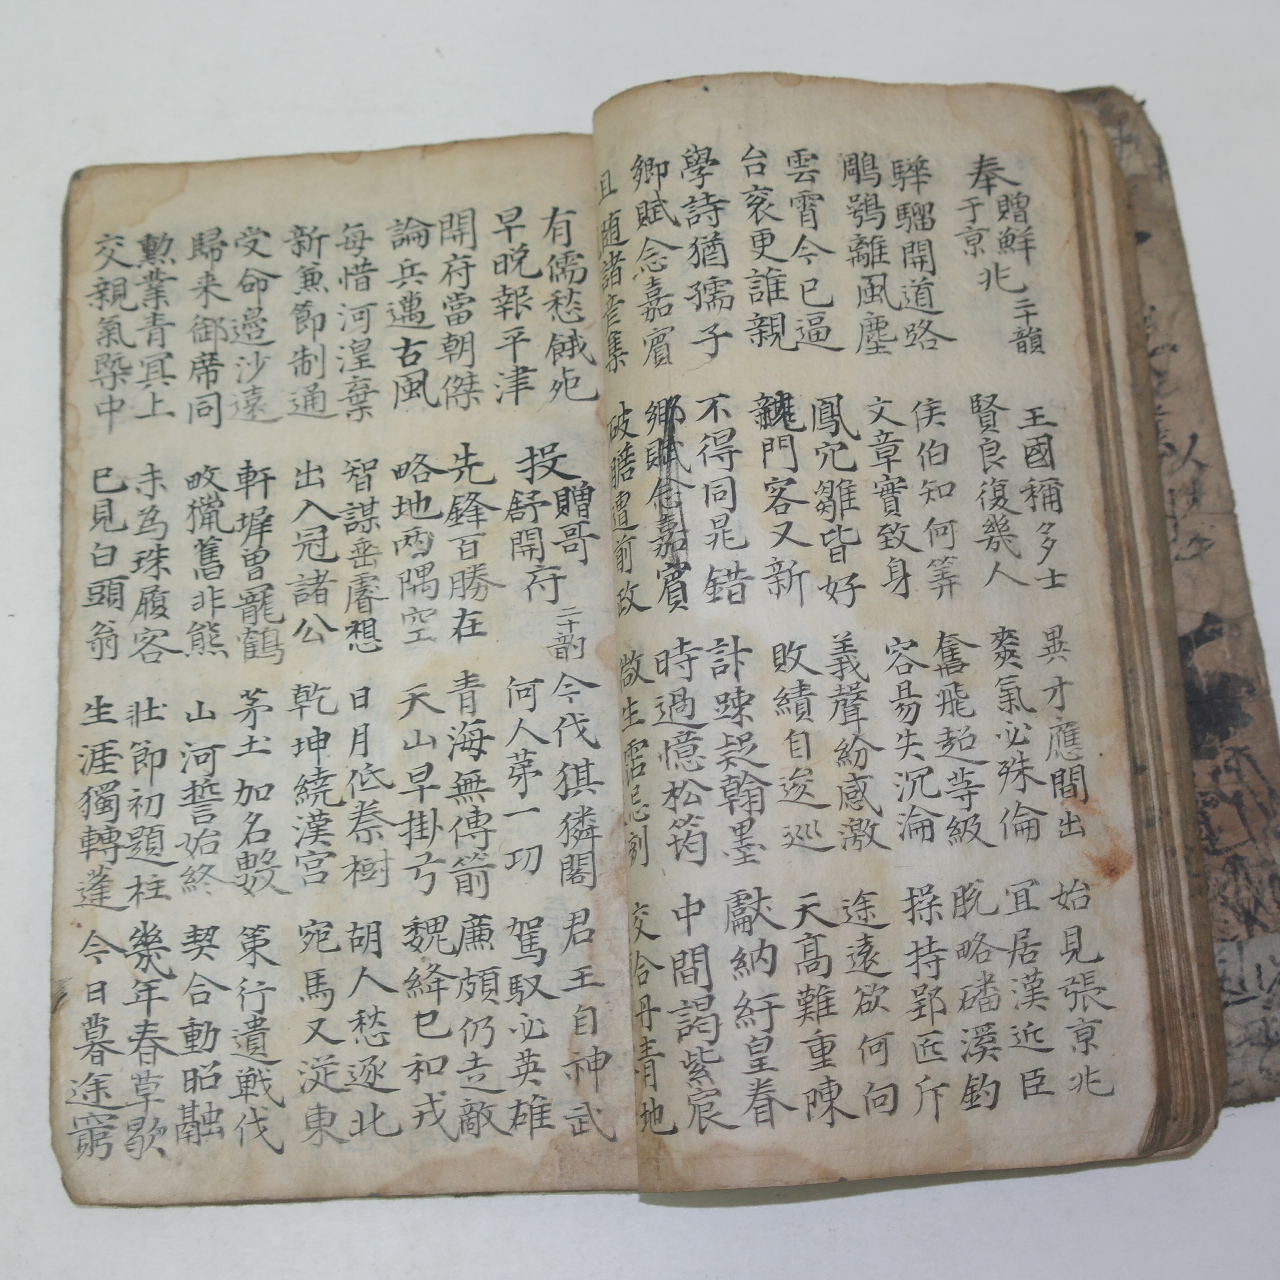 奉贈鮮于京兆二十韻
王國稱多士 異才應間出 始見張京兆
賢良復幾人 爽氣必殊倫 宜居漢近臣
驊騮開道路 侯伯知何等 奮飛超等級 脫略磻溪釣
鵰鶚離風塵 文章實致身 容易失沉淪 操持郢匠斤
雲霄今已逼 鳳穴雛皆好 義聲紛感激 途遠欲何向
台袞更誰親 龍門客又新 敗績自逡巡 天高難重陳
學詩猶孺子 不得同晁錯 計踈疑翰墨 獻納紆皇眷
鄉賦念嘉賓 鄉賦念嘉賓 時過憶松筠 中間謁紫宸
且随諸彥集 破膽遭前政 微生霑忌刻 交合丹青地
有儒愁餓死 投贈哥舒開府二十韵 今代猉獜閣 君王自神武
早晩報平津 何人苐一功 駕馭必英雄
開府當朝傑 先鋒百勝在 青海無傳箭 廉頗仍走敵
論兵邁古風 略地两隅空 天山早掛弓 魏絳已和戎
每惜河湟棄 智謀垂睿想 日月低秦樹 胡人愁逐北
新兼節制通 出入冠諸公 乾坤繞漢宮 宛馬又從東
受命邊沙遠 軒墀曾寵鶴 茅土加名數 策行遺戰伐
歸来御席同 畋獵舊非熊 山河誓始終 契合動昭融
勳業青冥上 未為珠履客 壯節初題柱 幾年春草歇
交親氣槩中 已見白頭翁 生涯獨轉蓬 今日暮途窮